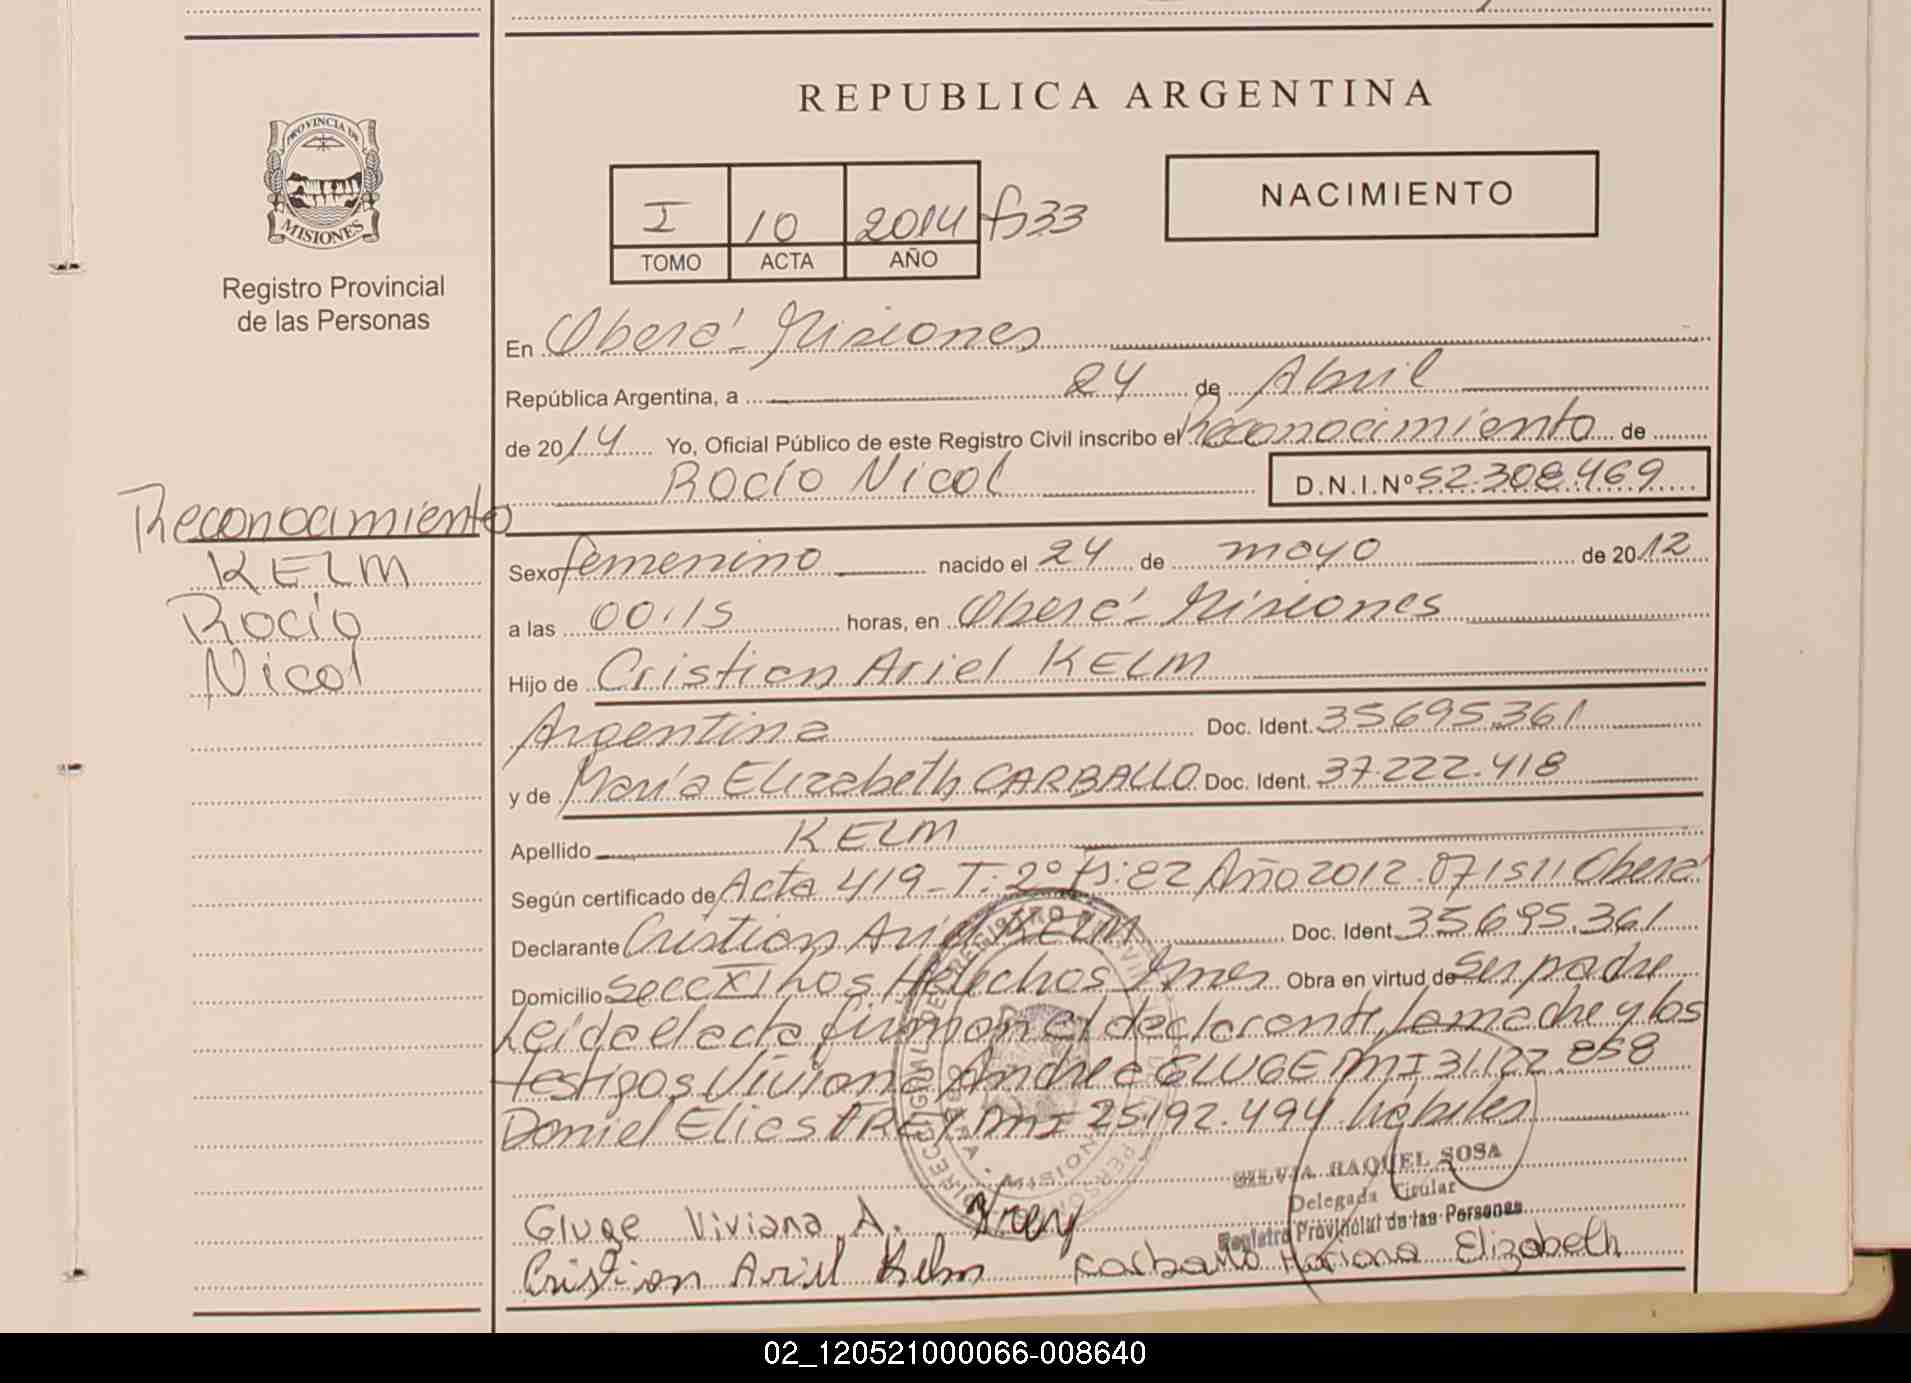 REPUBLICA ARGENTINA
PROVINCIA DE
MISIONES
Registro Provincial
de las Personas
I 10 2014 fs33
TOMO ACTA AÑO
NACIMIENTO
En Oberá - Misiones
República Argentina, a 24 de Abril
de 2014 Yo, Oficial Público de este Registro Civil inscribo el Reconocimiento de
Rocío Nicol D.N.I.Nº 52.308.469
Reconocimiento
KELM
Rocío
Nicol
Sexo femenino nacido el 24 de mayo de 2012
a las 00:15 horas, en Oberá - Misiones
Hijo de Cristian Ariel KELM
Argentina Doc. Ident. 35695.361
y de María Elizabeth CARBALLO Doc. Ident. 37.222.418
Apellido KELM
Según certificado de Acta 419 - T: 2º fs: 82 Año 2012. 071511 Oberá
Declarante Cristian Ariel KELM Doc. Ident. 35.695.361
Domicilio Secc XI Los Helechos Mnes Obra en virtud de Ser padre
Leída el acta firman el declarante, la madre y los
testigos Viviana Andrea GLUGE DMI 31.122.858
Daniel Elias DMI 25.192.494 hábiles
SILVIA RAQUEL SOSA
Delegada Titular
Registro Provincial de las Personas
Gluge Viviana A.
Cristian Ariel Kelm Carballo Mariana Elizabeth
02_120521000066-008640